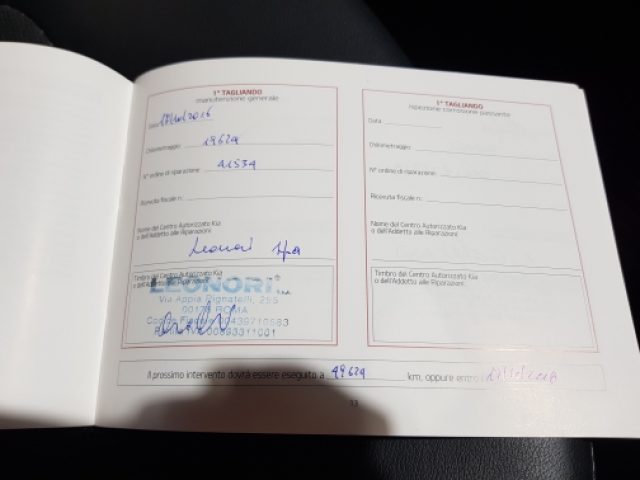 1° TAGLIANDO
manutenzione generale
Data
Chilometraggio 19629
N° ordine di riparazione
Ricevuta fiscale n.
Nome del Centro Autorizzato Kia
o dell'Addetto alle Riparazioni
Leonori SpA
Timbro del Centro Autorizzato Kia
o dell'Addetto alle Riparazioni
LEONORI® S.p.A.
Via Appia Pignatelli, 255
ROMA
1° TAGLIANDO
ispezione corrosione passante
Data
Chilometraggio
N° ordine di riparazione
Ricevuta fiscale n.
Nome del Centro Autorizzato Kia
o dell'Addetto alle Riparazioni
Timbro del Centro Autorizzato Kia
o dell'Addetto alle Riparazioni
Il prossimo intervento dovrà essere eseguito a 49629 km, oppure entro
33